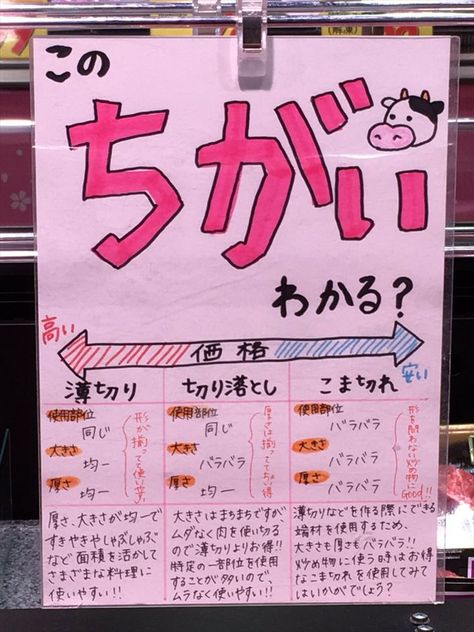 この
ちがい
わかる?
高い
価格
安い
薄切り
切り落とし
こま切れ
使用部位
同じ
大きさ
均一
厚さ
均一
形が揃ってて使い勝手
使用部位
同じ
大きさ
バラバラ
厚さ
均一
厚さは揃っててお得
使用部位
バラバラ
大きさ
バラバラ
厚さ
バラバラ
形を問わない炒め物に
GOOD!!
厚さ、大きさが均一で
すきやきやしゃぶしゃぶ
など 面積を活かして
さまざまな料理に
使いやすい!!
大きさはまちまちですが
ムダなく肉を使い切る
ので薄切りよりお得!!
特定の一部位を使用
することが多いので
ムラなく使いやすい!!
薄切りなどを作る際にできる
端材を使用するため、
大きさも厚さもバラバラ!!
炒め物に使う時はお得
なこま切れを使用してみて
はいかがでしょう?